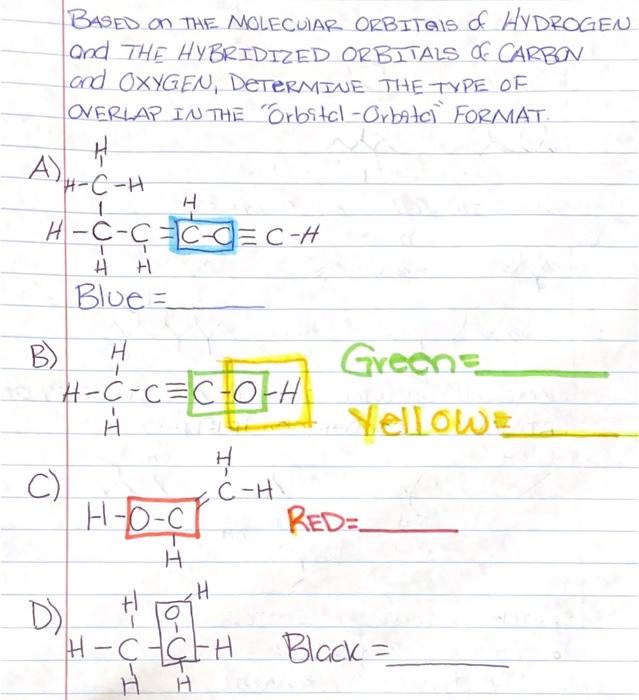 BASED on THE MOLECULAR ORBITals of HYDROGEN
and THE HYBRIDIZED ORBITALS OF CARBON
and OXYGEN, DETERMINE THE TYPE OF
OVERLAP IN THE "Orbital-Orbital" FORMAT.
A)
H
H-C-H
H
H-C-C=C-C≡C-H
H H
Blue=
B)
H
H-C-C≡C-O-H
H
Green=
Yellow=
C)
H
C-H
H-O-C
H
RED=
D)
H O H
H-C-C-H
H H
Black=